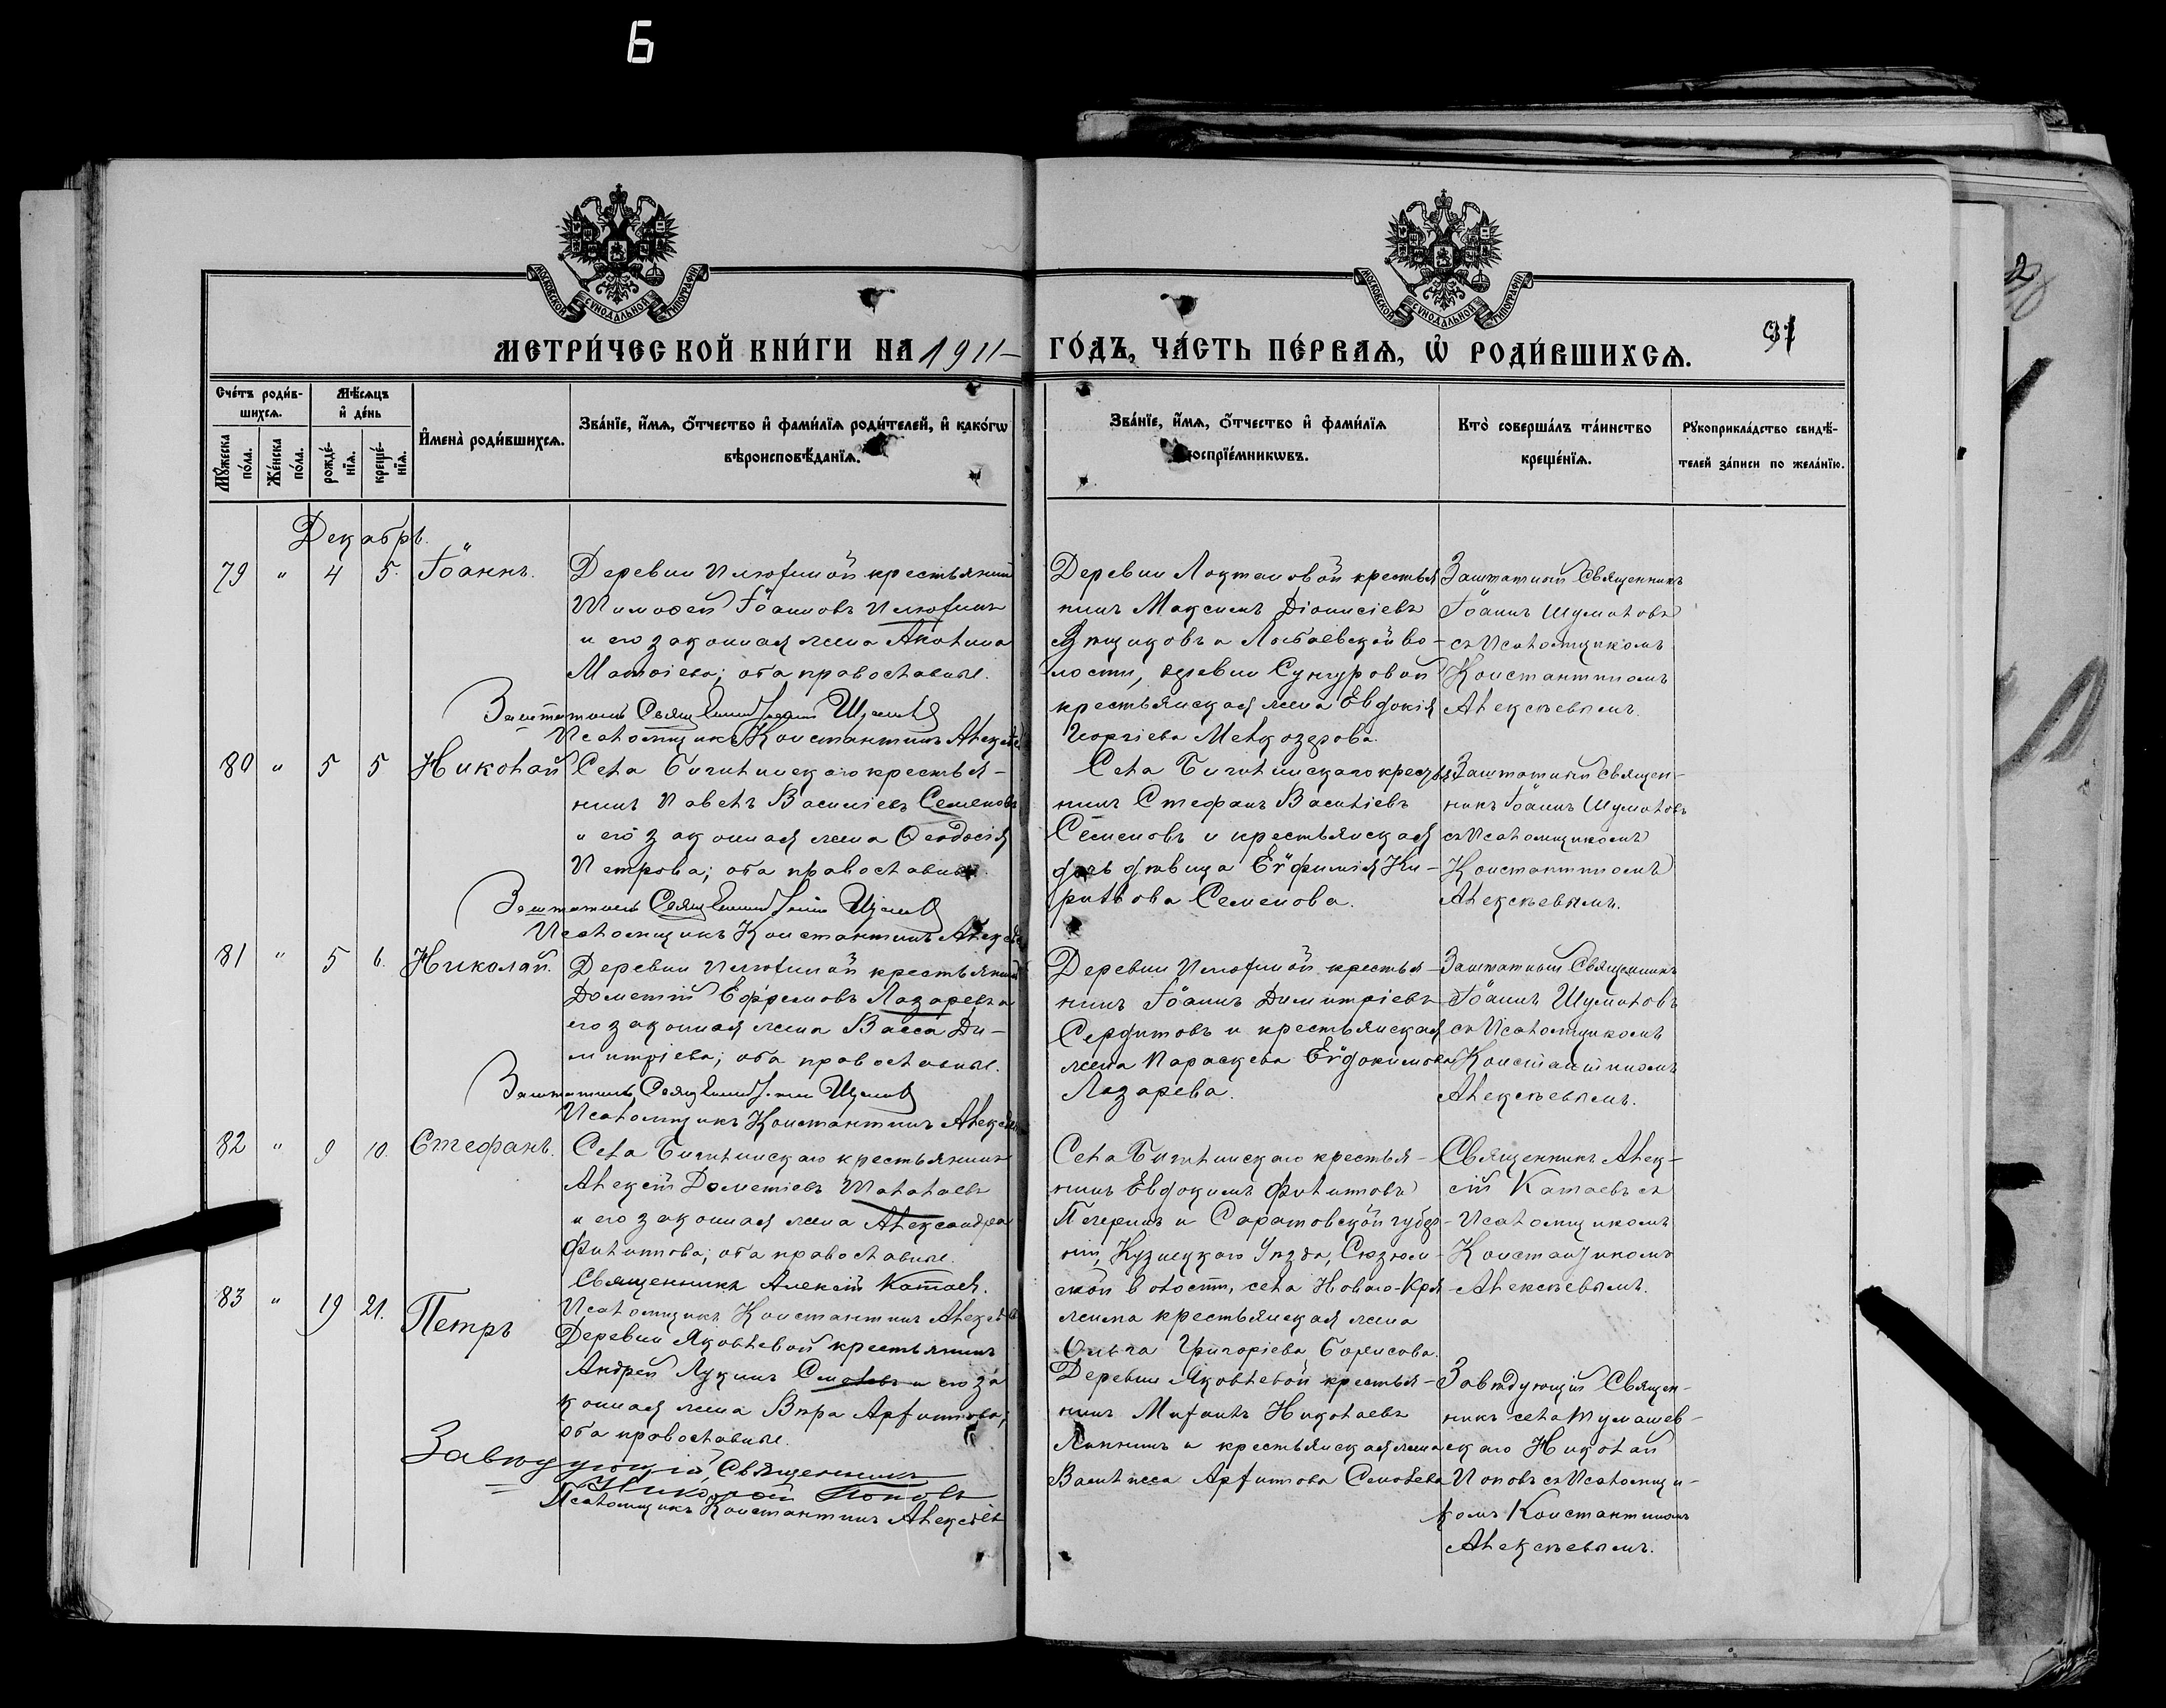 Б
МОСКОВСКОЙ СѴНОДАЛЬНОЙ ТИПОГРАФІИ
МОСКОВСКОЙ СѴНОДАЛЬНОЙ ТИПОГРАФІИ
МЕТРИ́ЧЕСКОЙ КНИ́ГИ НА 1911 ГО́ДЪ, ЧА́СТЬ ПЕ́РВАѦ, Ѡ҆ РОДИ́ВШИХСѦ.
91
Сче́тъ роди́в-
шихсѧ.
Мѣ́сѧцъ
и҆ де́нь
Мꙋ́жеска по́ла.
Же́нска по́ла.
рожде́-нїѧ.
креще́-нїѧ.
И҆мена̀ роди́вшихсѧ.
Зва́нїе, и҆́мѧ, ѻ҆́тчество и҆ фами́лїѧ роди́телей, и҆ како́гѡ
вѣроисповѣ́данїѧ.
Зва́нїе, и҆́мѧ, ѻ҆́тчество и҆ фами́лїѧ
воспрїе́мникѡвъ.
Кто̀ соверша́лъ та́инство
креще́нїѧ.
Рꙋкоприкла́дство свидѣ́-
телей за́писи по жела́нїю.
Декабрь.
79 " 4 5. Іоаннъ.
Деревни крестьянинъ
Тимофей Іоанновъ
и его законная жена Акилина
оба православные.
Заштатный Священникъ Іоаннъ
Псаломщикъ Константинъ Алексѣевъ
Деревни крестья
нинъ Максимъ Діонисіевъ
и во-
лости, деревни Сунгуровой
крестьянская жена Евдокія
Георгіева Мелкозерова.
Заштатный Священникъ
Іоаннъ Шумиловъ
съ Псаломщикомъ
Константиномъ
Алексѣевымъ.
80 " 5 5 Николай
Села крестья-
нинъ Павелъ Василіевъ Семеновъ
и его законная жена Ѳеодосія
Петрова; оба православные.
Заштатный Священникъ Іоаннъ
Псаломщикъ Константинъ Алексѣевъ
Села крестья
нинъ Стефанъ Василіевъ
Семеновъ и крестьянская
дочь дѣвица Евфимія Ки-
риллова Семенова.
Заштатный Священ-
никъ Іоаннъ Шумиловъ
съ Псаломщикомъ
Константиномъ
Алексѣевымъ.
81 " 5 6. Николай.
Деревни крестьянинъ
Дометій Ефремовъ Лазаревъ и
его законная жена Васса Ди-
митріева; оба православные.
Заштатный Священникъ Іоаннъ
Псаломщикъ Константинъ Алексѣевъ
Деревни крестья-
нинъ Іоаннъ Димитріевъ
Сердитовъ и крестьянская
жена Параскева Евдокимова
Лазарева.
Заштатный Священникъ
Іоаннъ Шумиловъ
съ Псаломщикомъ
Константиномъ
Алексѣевымъ.
82 " 9 10. Стефанъ.
Села крестьянинъ
Алексій Дометіевъ Шалалаевъ
и его законная жена Александра
Филиппова; оба православные.
Священникъ Алексій Катаевъ.
Псаломщикъ Константинъ Алексѣевъ
Села крестья-
нинъ Евдокимъ Филипповъ
и Саратовской губер
ніи, Кузнецкаго Уѣзда, Сюзюм-
ской волости, села Новаго-Кря
жима крестьянская жена
Ольга Григоріева Борисова.
Священникъ Алек-
сій Катаевъ съ
Псаломщикомъ
Константиномъ
Алексѣевымъ.
83 " 19 21. Петръ
Деревни Яковлевой крестьянинъ
Андрей Лукинъ и его за
конная жена Вѣра
оба православные.
Завѣдующій Священникъ
Николай Поповъ
Псаломщикъ Константинъ Алексѣевъ
Деревни Яковлевой крестья-
нинъ Михаилъ Николаевъ
и крестьянская жена
Василисса
Завѣдующій Священ-
никъ села Тумашев-
скаго Николай
Поповъ съ Псаломщи-
комъ Константиномъ
Алексѣевымъ.